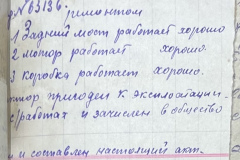 №63136. ремонтом
1 Задний мост работает хорошо
2 мотор работает хорошо.
3 коробка работает хорошо.
пригоден к эксплоатации.
работах и зачислен в общество
и составлен настоящий акт.